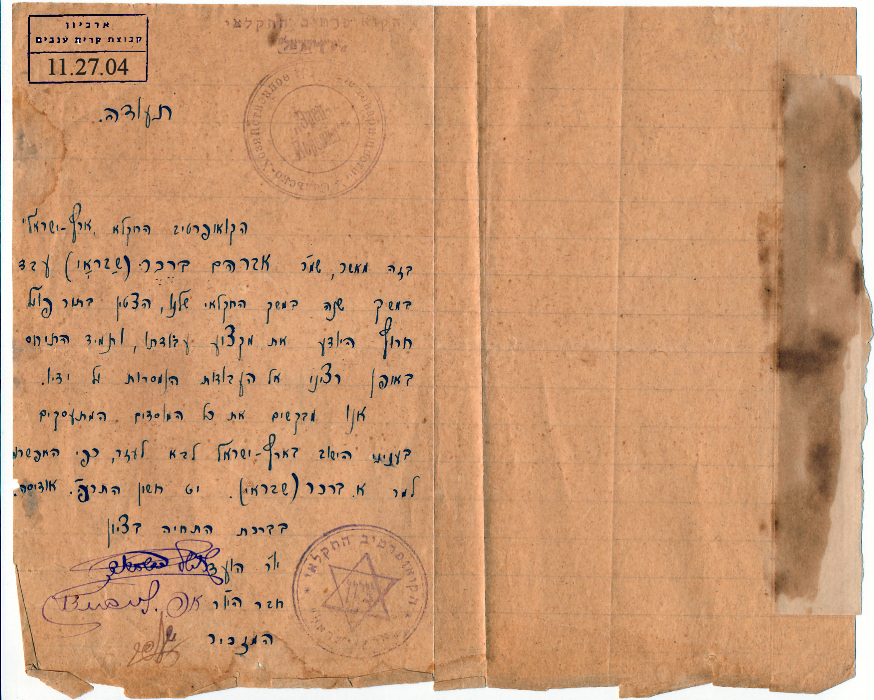 ארכיון
קבוצת קרית ענבים
11.27.04
הקואופרטיב החקלאי
תעודה.
הקואופרטיב החקלאי "ארץ-ישראל"
בזה מאשר, שמר אברהם ברכר (שבראון) עבד
במשך שנה במשק החקלאי שלנו, הצטין בתור פועל
חרוץ היודע את מקצוע עבודתו, ותמיד התיחס
באופן רציני אל העבודות הנמסרות על ידיו.
אנו מבקשים את כל המוסדים המתעסקים
בעניני הישוב בארץ-ישראל לבא לעזר, כפי האפשרות
למר א. ברכר (שבראון). יט חשון התר"פ. אודיסה.
בברכת התחיה בציון
יו"ר הועד
חבר היו"ר
המזכיר
הקואופרטיב החקלאי